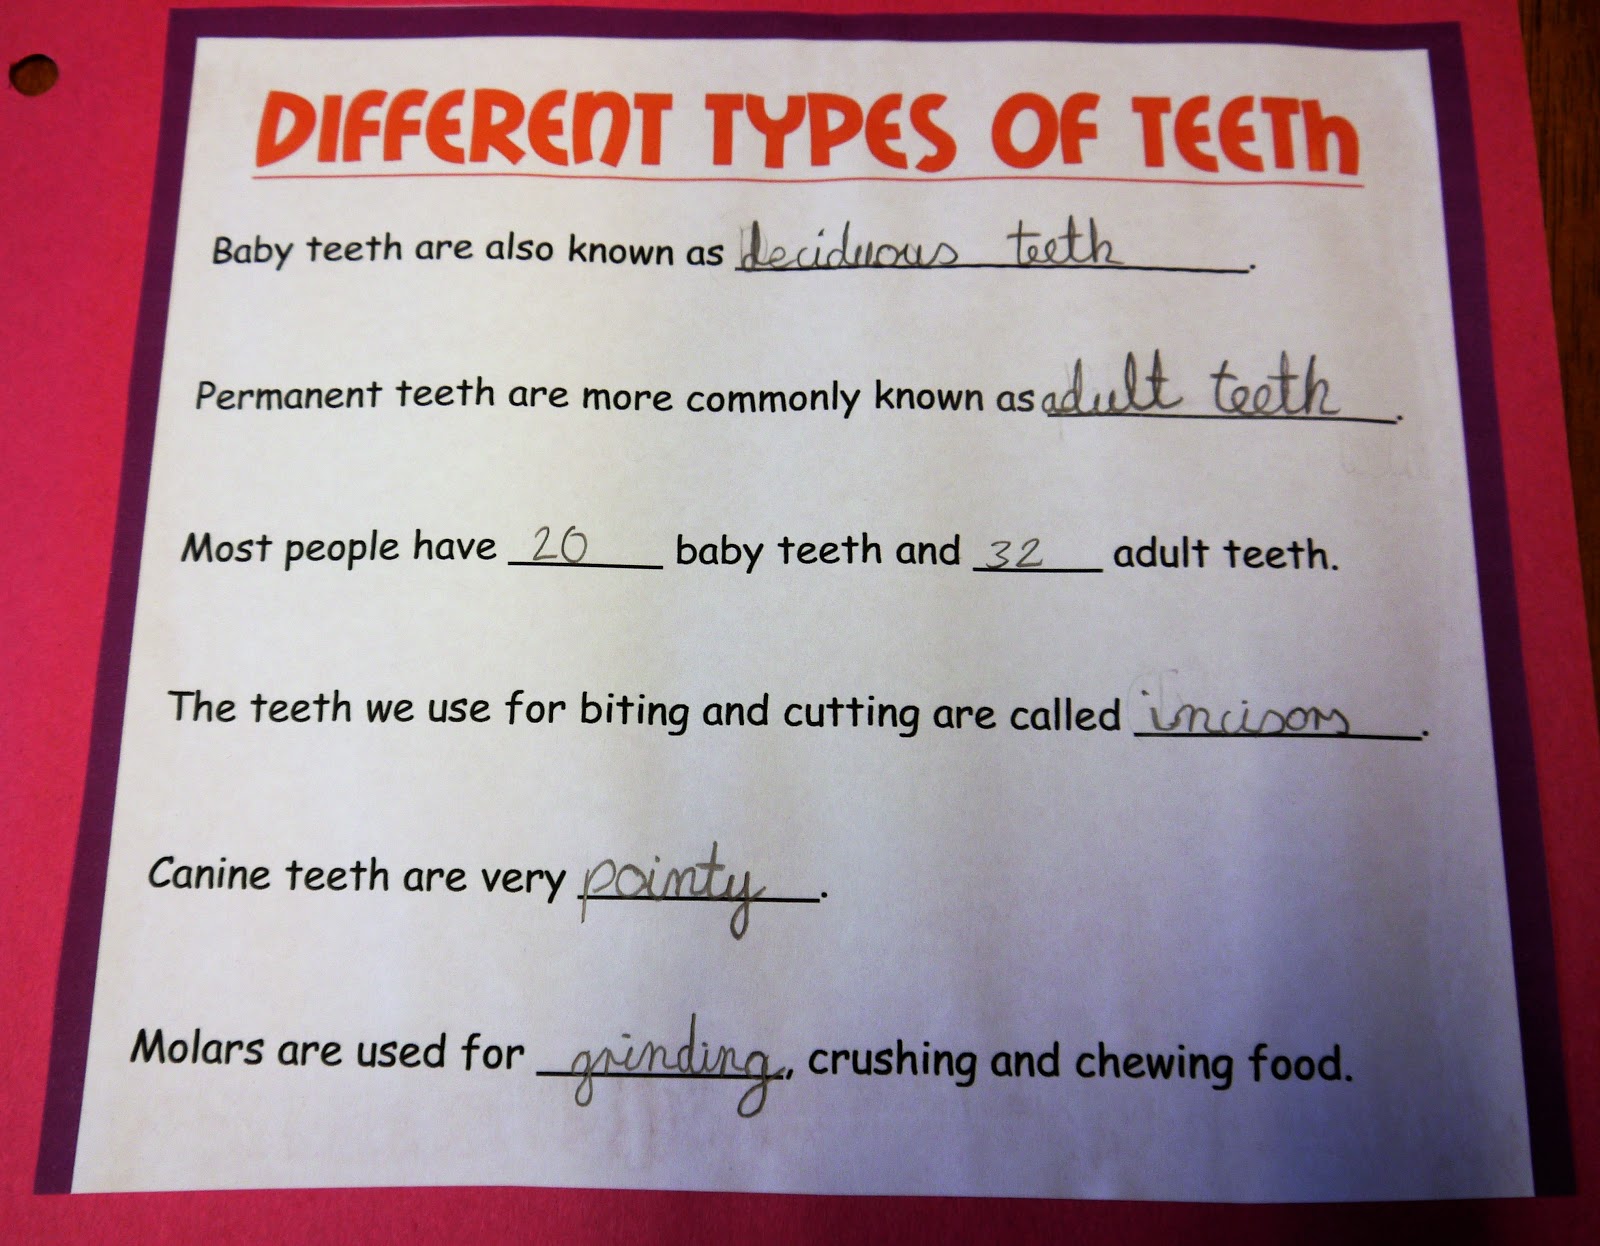 DIFFERENT TYPES OF TEETH
Baby teeth are also known as deciduous teeth.
Permanent teeth are more commonly known as adult teeth.
Most people have 20 baby teeth and 32 adult teeth.
The teeth we use for biting and cutting are called incisors.
Canine teeth are very pointy.
Molars are used for grinding, crushing and chewing food.